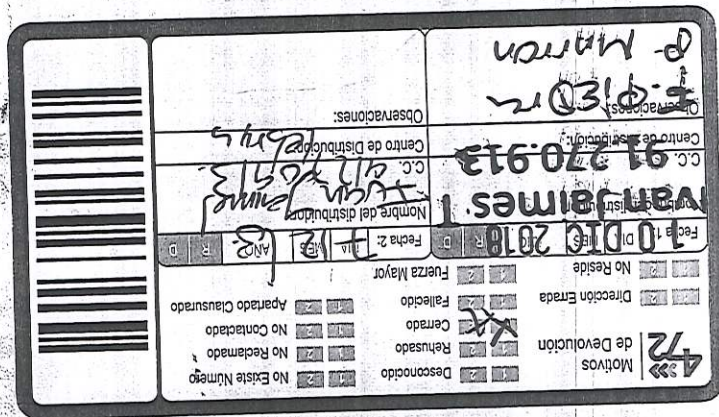 472 Motivos de Devolución
Desconocido
Rehusado
Cerrado
Fallecido
Fuerza Mayor
No Existe Número
No Reclamado
No Contactado
Apartado Clausurado
Dirección Errada
No Reside
Fecha 1: 10 DIC 2018 R D
Nombre del distribuidor:
Ivan Jaimes T
C.C. 91.270.913
Centro de Distribución:
Observaciones:
P- Marron
Fecha 2: DIA MES AÑO R D
7 12
Nombre del distribuidor:
Ivan Jaimes
C.C.
Centro de Distribución:
Observaciones: